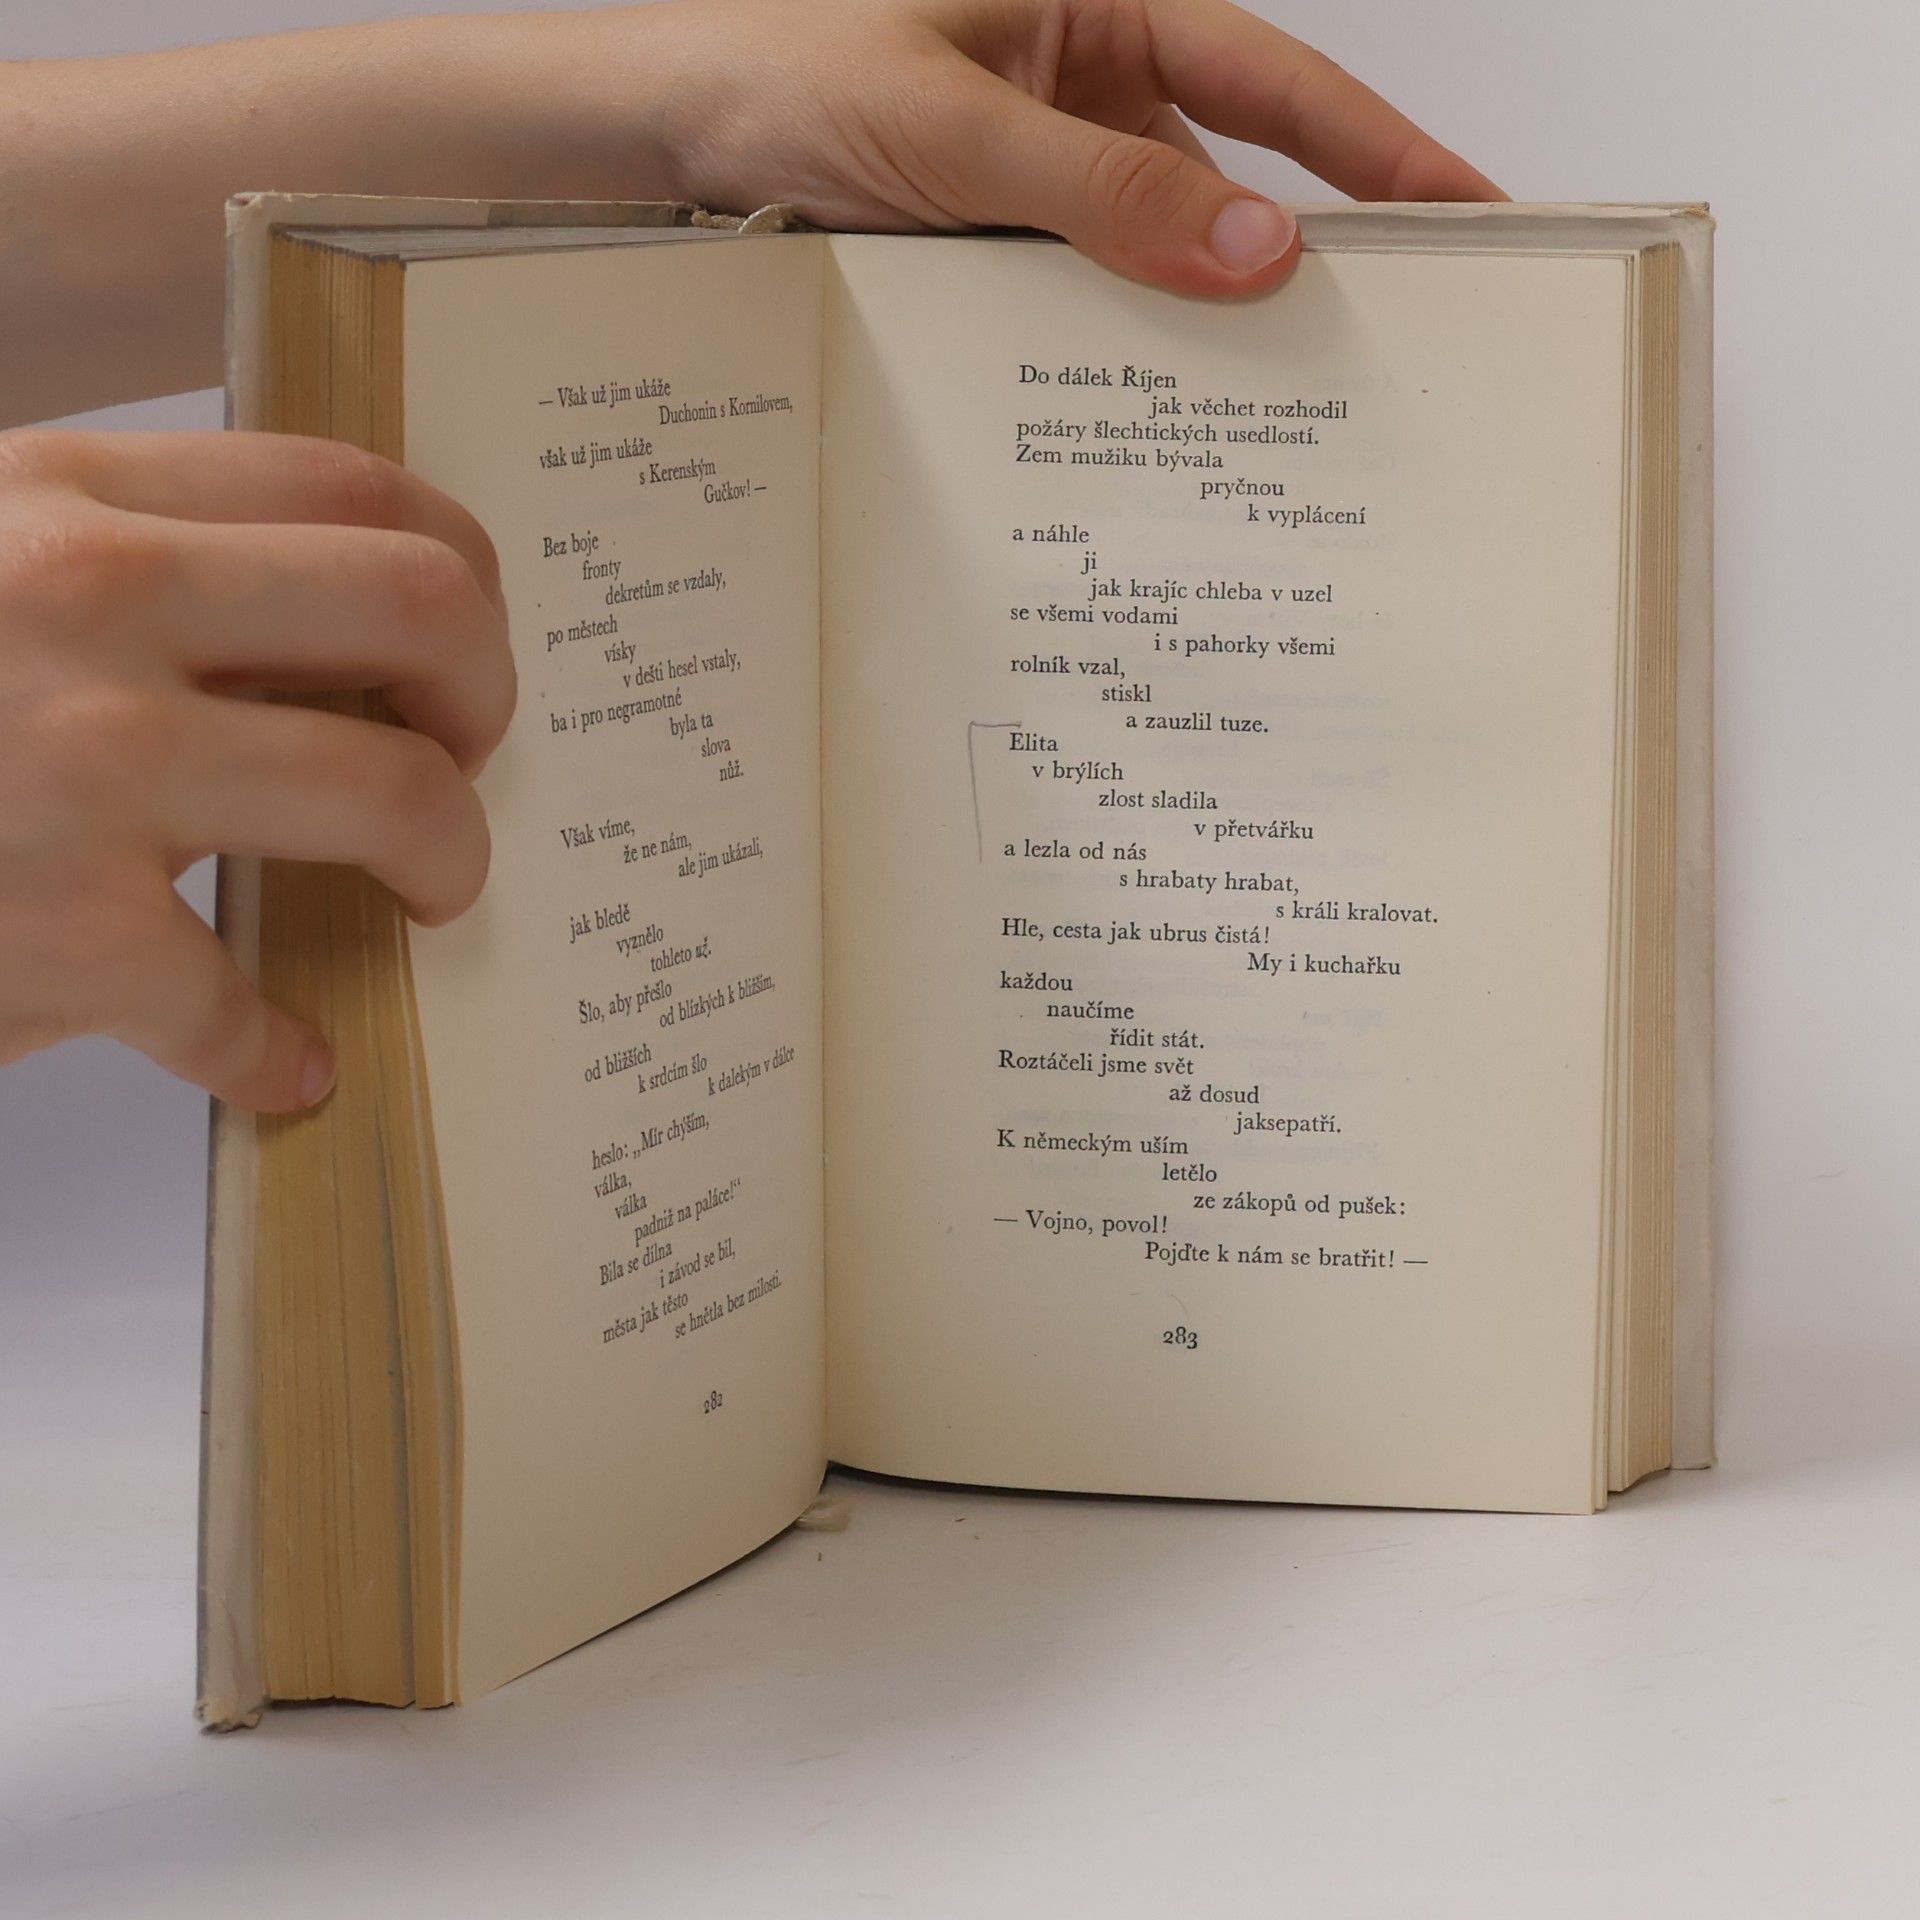 — Však už jim ukáže
Duchonin s Kornilovem,
však už jim ukáže
s Kerenským
Gučkov! —
Bez boje
fronty
dekretům se vzdaly,
po městech
vísky
v dešti hesel vstaly,
ba i pro negramotné
byla ta
slova
nůž.
Však víme,
že ne nám,
ale jim ukázali,
jak bledě
vyznělo
tohleto už.
Šlo, aby přešlo
od blízkých k bližším,
od bližších
k srdcím šlo
k dalekým v dálce
heslo: „Mír chýším,
válka,
válka
padniž na paláce!“
Bila se dílna
i závod se bil,
města jak těsto
se hnětla bez milosti.
282
Do dálek Říjen
jak věchet rozhodil
požáry šlechtických usedlostí.
Zem mužiku bývala
pryčnou
k vyplácení
a náhle
ji
jak krajíc chleba v uzel
se všemi vodami
i s pahorky všemi
rolník vzal,
stiskl
a zauzlil tuze.
Elita
v brýlích
zlost sladila
v přetvářku
a lezla od nás
s hrabaty hrabat,
s králi kralovat.
Hle, cesta jak ubrus čistá!
My i kuchařku
každou
naučíme
řídit stát.
Roztáčeli jsme svět
až dosud
jaksepatří.
K německým uším
letělo
ze zákopů od pušek:
— Vojno, povol!
Pojďte k nám se bratřit! —
283